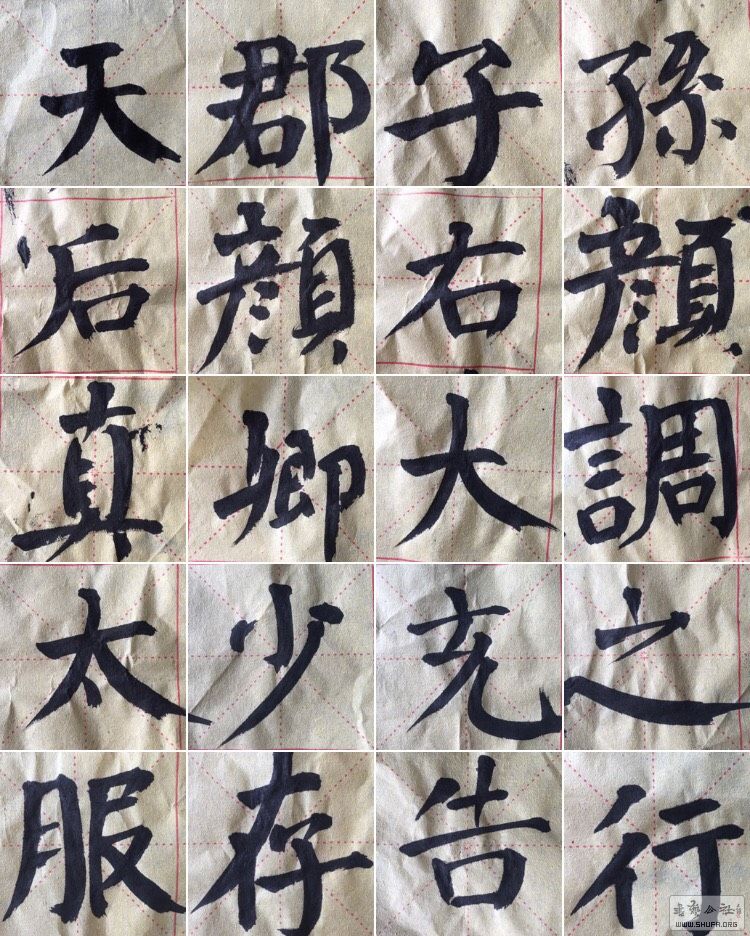 天郡子孫
后顏右顏
真卿大調
太少之
服存告行
WWW.SHUFA.ORG